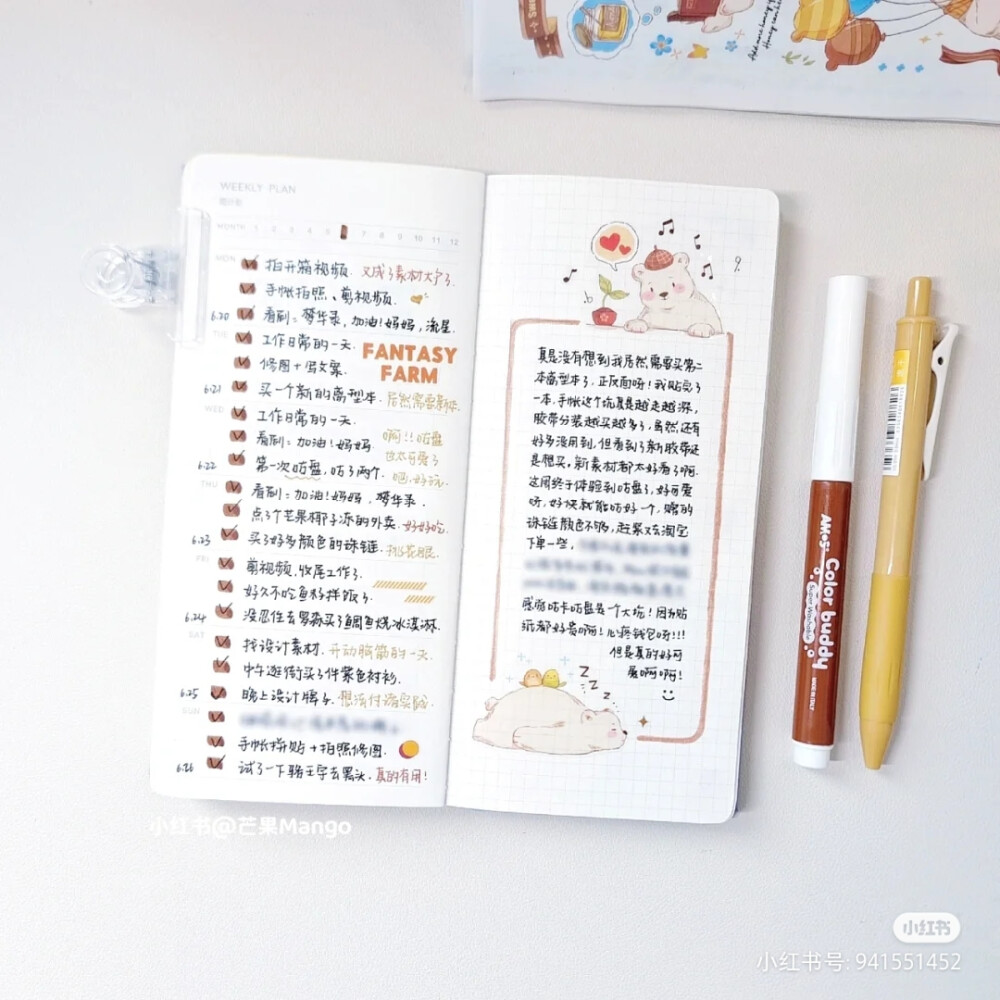 WEEKLY·PLAN
周计划
MONTH 1 2 3 4 5 7 8 9 10 11 12
MON
拍开箱视频. 又成了素材大户了.
手帐拍照、剪视频.
6.20 看剧：梦华录，加油！妈妈，流星.
TUE
工作日常的一天.
FANTASY
FARM
修图+写文案.
6.21 买一个新的离型本. 居然需要新本.
WED
工作日常的一天.
看剧：加油！妈妈. 啊！！咕盘
也太可爱了
6.22 第一次咕盘，咕了两个. 吧，好玩.
THU
看剧：加油！妈妈，梦华录.
点了个芒果椰子冻的外卖. 好好吃.
6.23 买了好多颜色的珠链. 挑花眼.
FRI
剪视频，收尾工作了.
好久不吃鱼籽拌饭了.
6.24 没忍住去罗森买了鲷鱼烧冰淇淋.
SAT
找设计素材. 开动脑筋的一天.
中午逛街买了件紫色衬衫.
6.25 晚上设计牌子. 想法付诸实际.
SUN
手帐拼贴+拍照修图.
6.26 试了一下骆王宇去黑头. 真的有用！
9.
真是没有想到我居然需要买第二
本离型本了. 正反面呀！我贴完了
一本. 手帐这个坑真是越走越深，
胶带分装越买越多了，虽然还有
好多没用到，但看到了新胶带还
是想买，新素材都太好看了啊.
这周终于体验到咕盘了，好可爱
呀，好快就能咕好一个，赠的
珠链颜色不够，赶紧又去淘宝
下单一些.
感海咕卡咕盘是一个大坑！因为贴
纸都好贵啊！心疼钱包呀！！！
但是真的好可
爱啊啊啊！
Z Z Z
AMOS Color buddy
Super Washable
MADE IN ITALY
小红书@芒果Mango
小红书
小红书号: 941551452